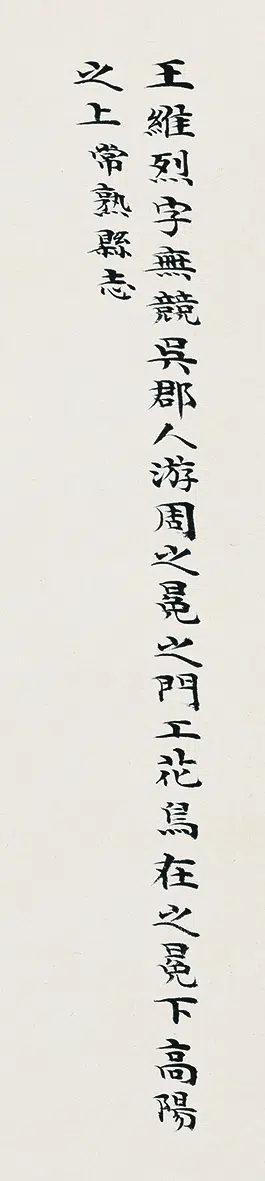 王維烈字無競吳郡人游周之冕之門工花鳥在之冕下高陽
之上常熟縣志